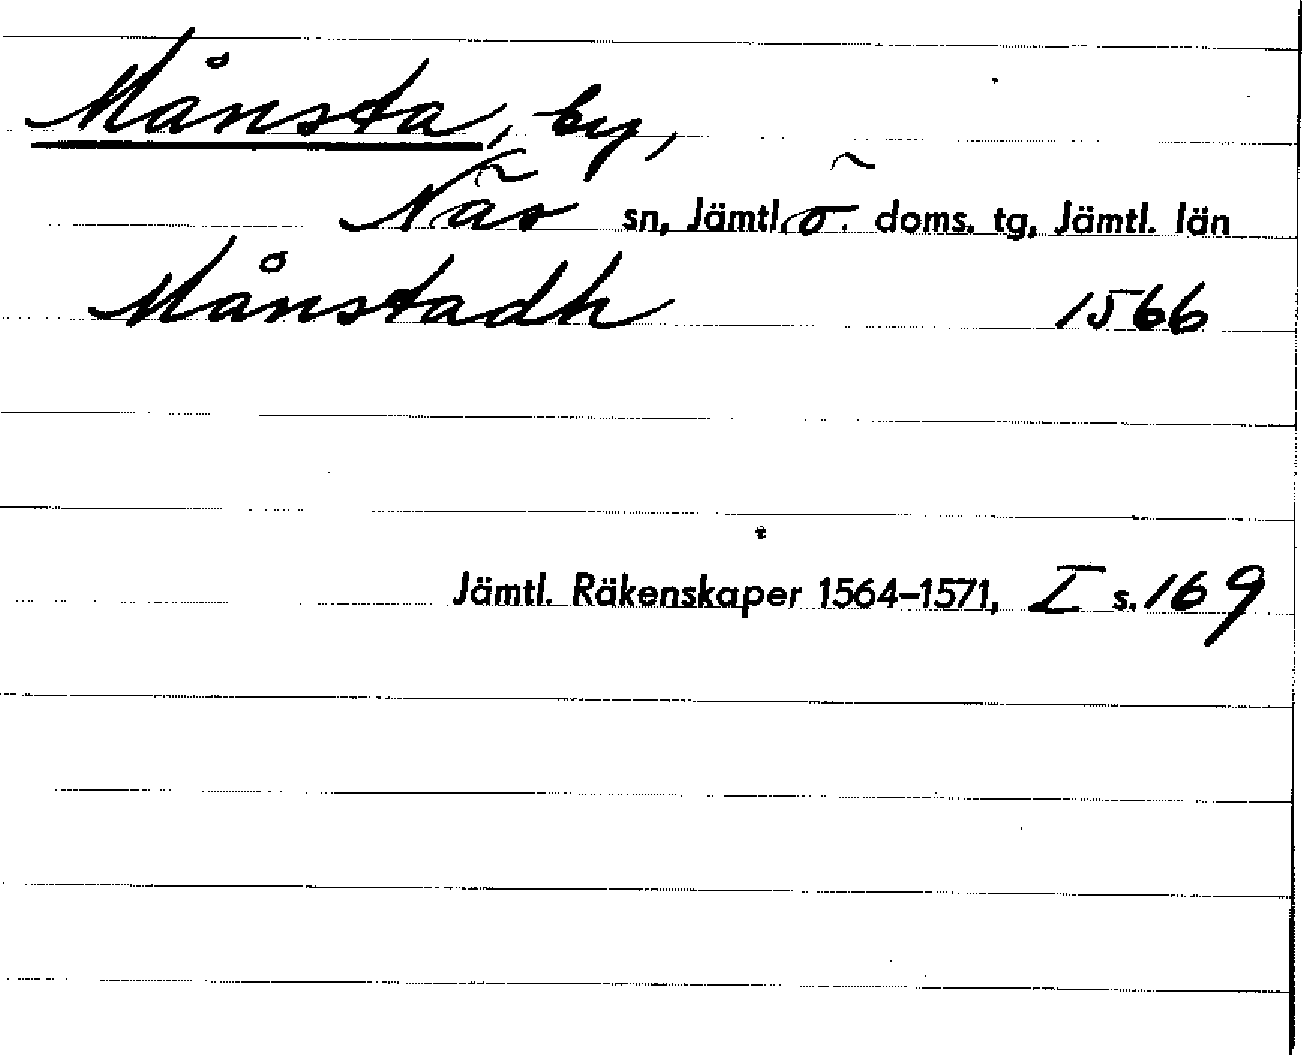 Månsta, by,
Näs sn, Jämtl. ö. doms. tg, Jämtl. län
Månstadh 1566
Jämtl. Räkenskaper 1564–1571, I s. 169